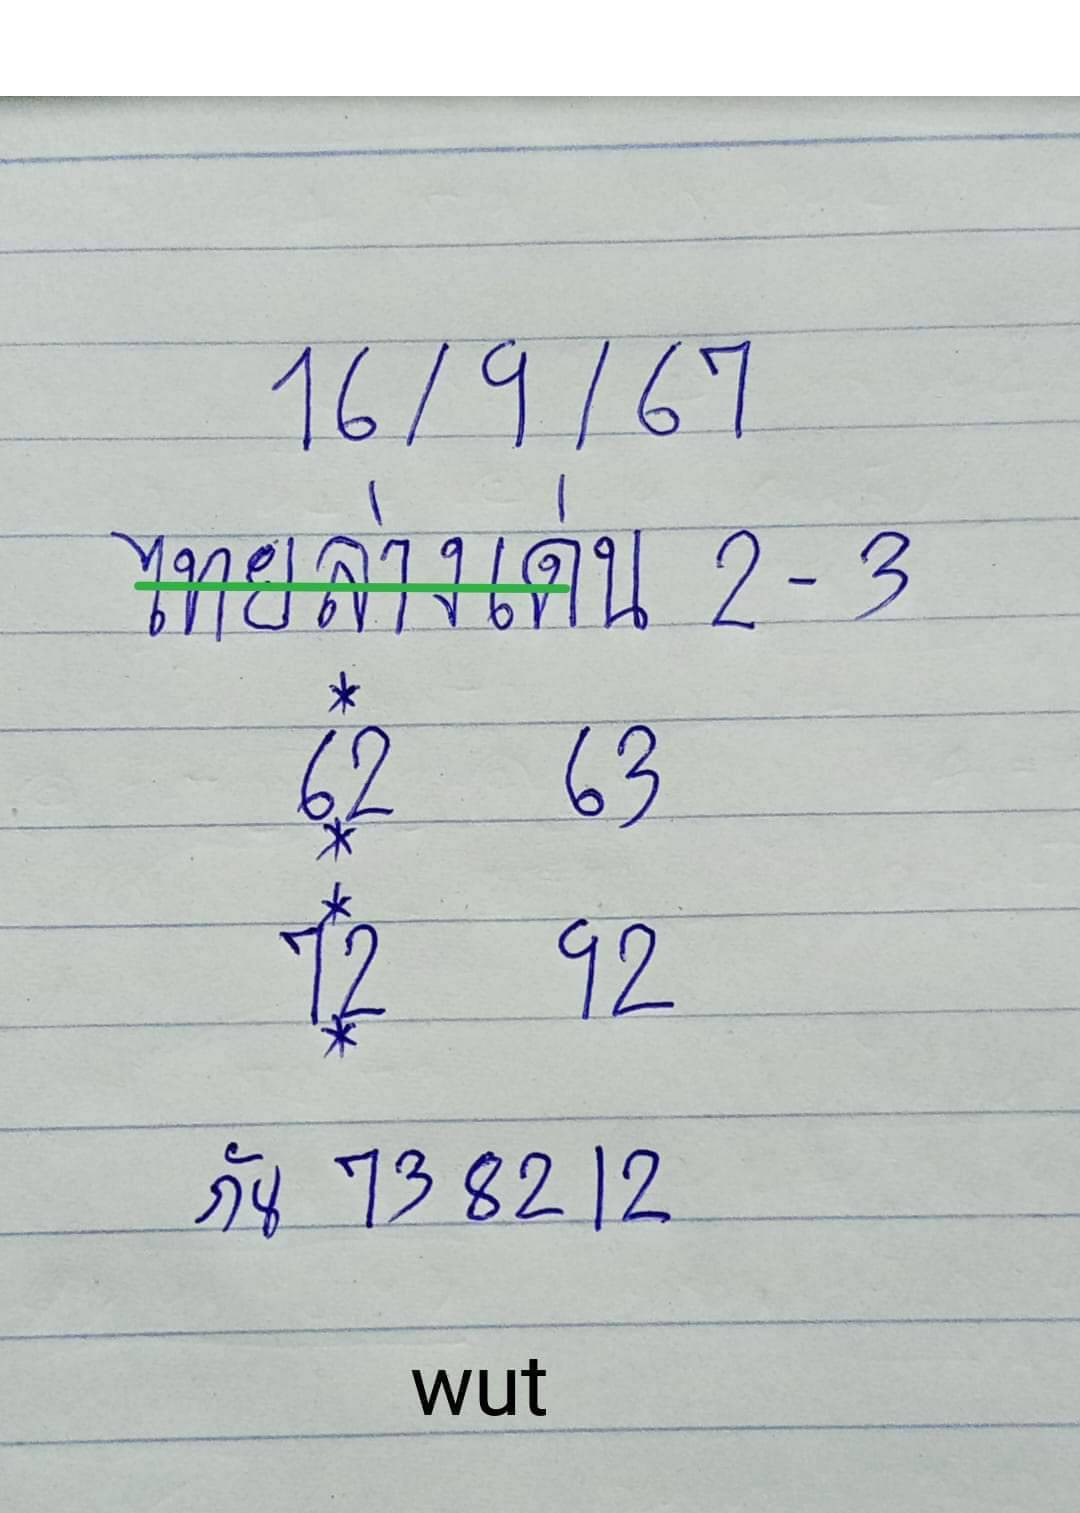 16/9/67
ไทยล่างเด่น 2-3
*
62 63
*
*
72 92
*
ภัย 73 82 12
wut